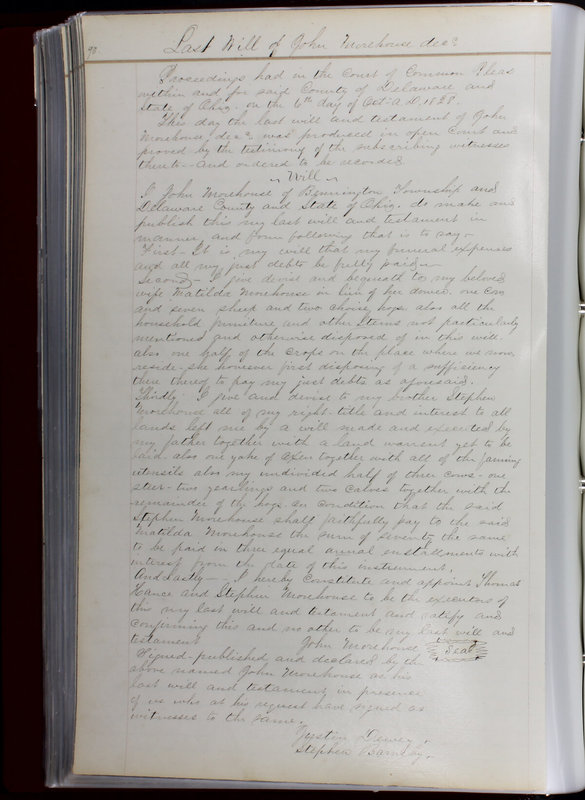 98
Last Will of John Morehouse decd
Proceedings had in the Court of Common Pleas
within and for said County of Delaware and
State of Ohio. on the 6th day of Oct. A.D. 1828.
This day the last will and testament of John
Morehouse, decd. was produced in open Court and
proved by the testimony of the subscribing witnesses
thereto - and ordered to be recorded
~ Will ~
I John Morehouse of Bennington Township and
Delaware County and State of Ohio. do make and
publish this my last will and testament in
manner and form following that is to say -
First - It is my will that my funeral expenses
and all my just debts be fully paid -
Second - I give devise and bequeath to my beloved
wife Matilda Morehouse in lieu of her dower. one Cow
and seven sheep and two choise hogs. also all the
household furniture and other items not particularly
mentioned and otherwise disposed of in this will.
also one half of the crops on the place where we now
reside - she however first disposing of a sufficiency
there thereof to pay my just debts as aforesaid.
Thirdly. I give and devise to my brother Stephen
Morehouse all of my right. title and interest to all
lands left me by a will made and executed by
my father together with a land warrent yet to be
laid. also one yoke of oxen together with all of the farming
utensils also my undivided half of three cows - one
steer - two yearlings and two calves together with the
remainder of the hogs on condition that the said
Stephen Morehouse shall faithfully pay to the said
Matilda Morehouse the sum of seventy the same
to be paid in three equal anual enstallments with
interest from the date of this instrument.
And Lastly - I hereby Constitute and appoint Thomas
Hance and Stephen Morehouse to be the executors of
this my last will and testament and ratify and
confirming this and no other to be my last will and
testament John Morehouse Seal
Signed - published and declared by the
above named John Morehouse as his
last will and testament in presence
of us who at his request have signed as
witnesses to the same.
Dewey.
Stephen Barnaby.